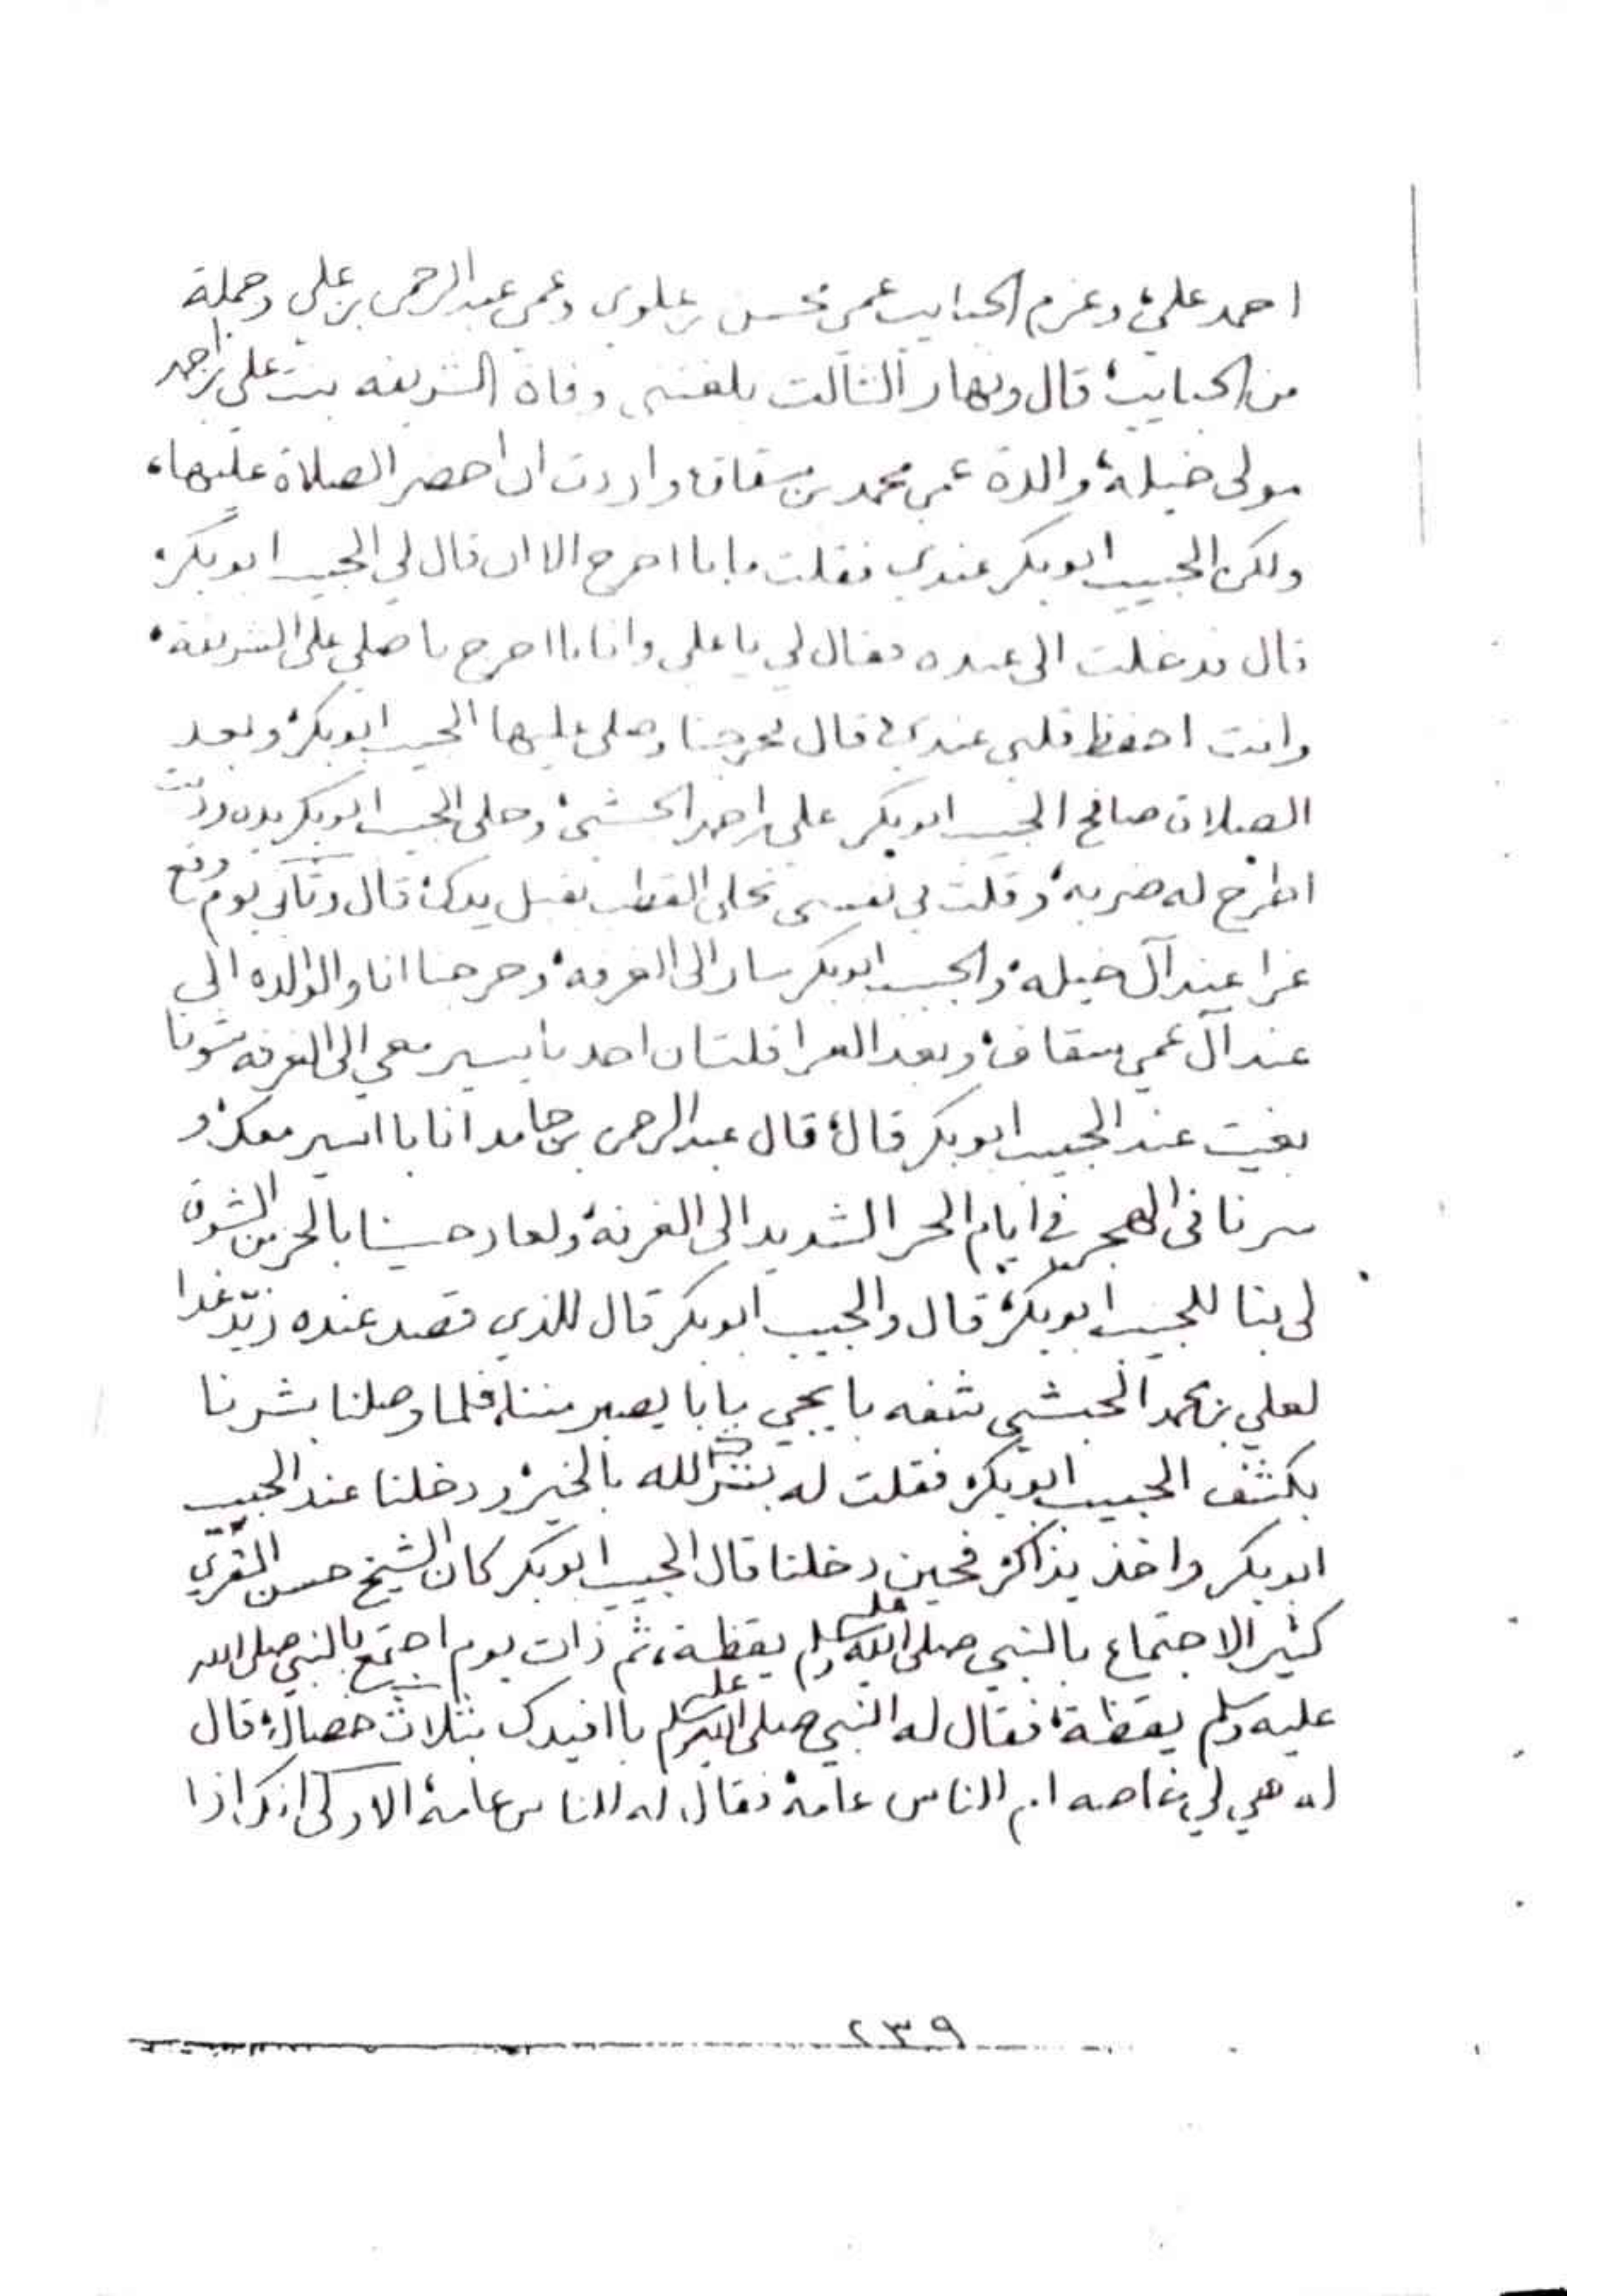 احمد علي، وعزم الحبايب عمي محسن بن علوي وعمي عبدالرحمن بن علي وجملة
من الحبايب، قال ونهار الثالث بلغتني وفاة الشريفه بنت علي بن احمد
مولى خيله، والدة عمي محمد بن سقاف، واردت ان احضر الصلاة عليها،
ولكن الحبيب ابوبكر عندي فقلت ما با اخرج الا ان قال لي الحبيب ابوبكر،
قال فدخلت الى عنده فقال لي يا علي وانا با اخرج با صلي على الشريفة،
وانت احفظ قلبي عندي، قال فخرجنا وصلى عليها الحبيب ابوبكر، وبعد
الصلاة صافح الحبيب ابوبكر علي بن احمد الحبشي، وخلى الحبيب ابوبكر يده ووديت
اطرح له ضربه، وقلت في نفسي تخلي القطب يقبل يدك، قال وثاني يوم وقع
عزا عند آل خيله، والحبيب ابوبكر سار الى الغرفه، وخرجنا انا والوالده الى
عند آل عمي سقاف، وبعد العزا قلت ان احد با يسير معي الى الغرفه شونا
بغيت عند الحبيب ابوبكر قال، قال عبدالرحمن بن حامد انا با اسير معك، و
سرنا في الهجير في ايام الحر الشديد الى الغرفة، ولعاد حسينا بالحر من الشوق
لي بنا للحبيب ابوبكر، قال والحبيب ابوبكر قال للذي قصد عنده زيّد غدا
لعلي بن محمد الحبشي شفه با يجي با با يصبر مننا، فلما وصلنا بشرنا
بكشف الحبيب ابوبكر، فقلت له بشرك الله بالخير، ودخلنا عند الحبيب
ابوبكر واخذ يذاكر، فحين دخلنا قال الحبيب ابوبكر كان الشيخ حسن المقري
كثير الاجتماع بالنبي صلى الله عليه وسلم يقظة، ثم ذات يوم اجتمع بالنبي صلى الله
عليه وسلم يقظة، فقال له النبي صلى الله عليه وسلم با افيدك بثلاث خصال، قال
له هي لي خاصه ام الناس عامة، فقال له للناس عامة، الاولى انك اذا
٢٣٩